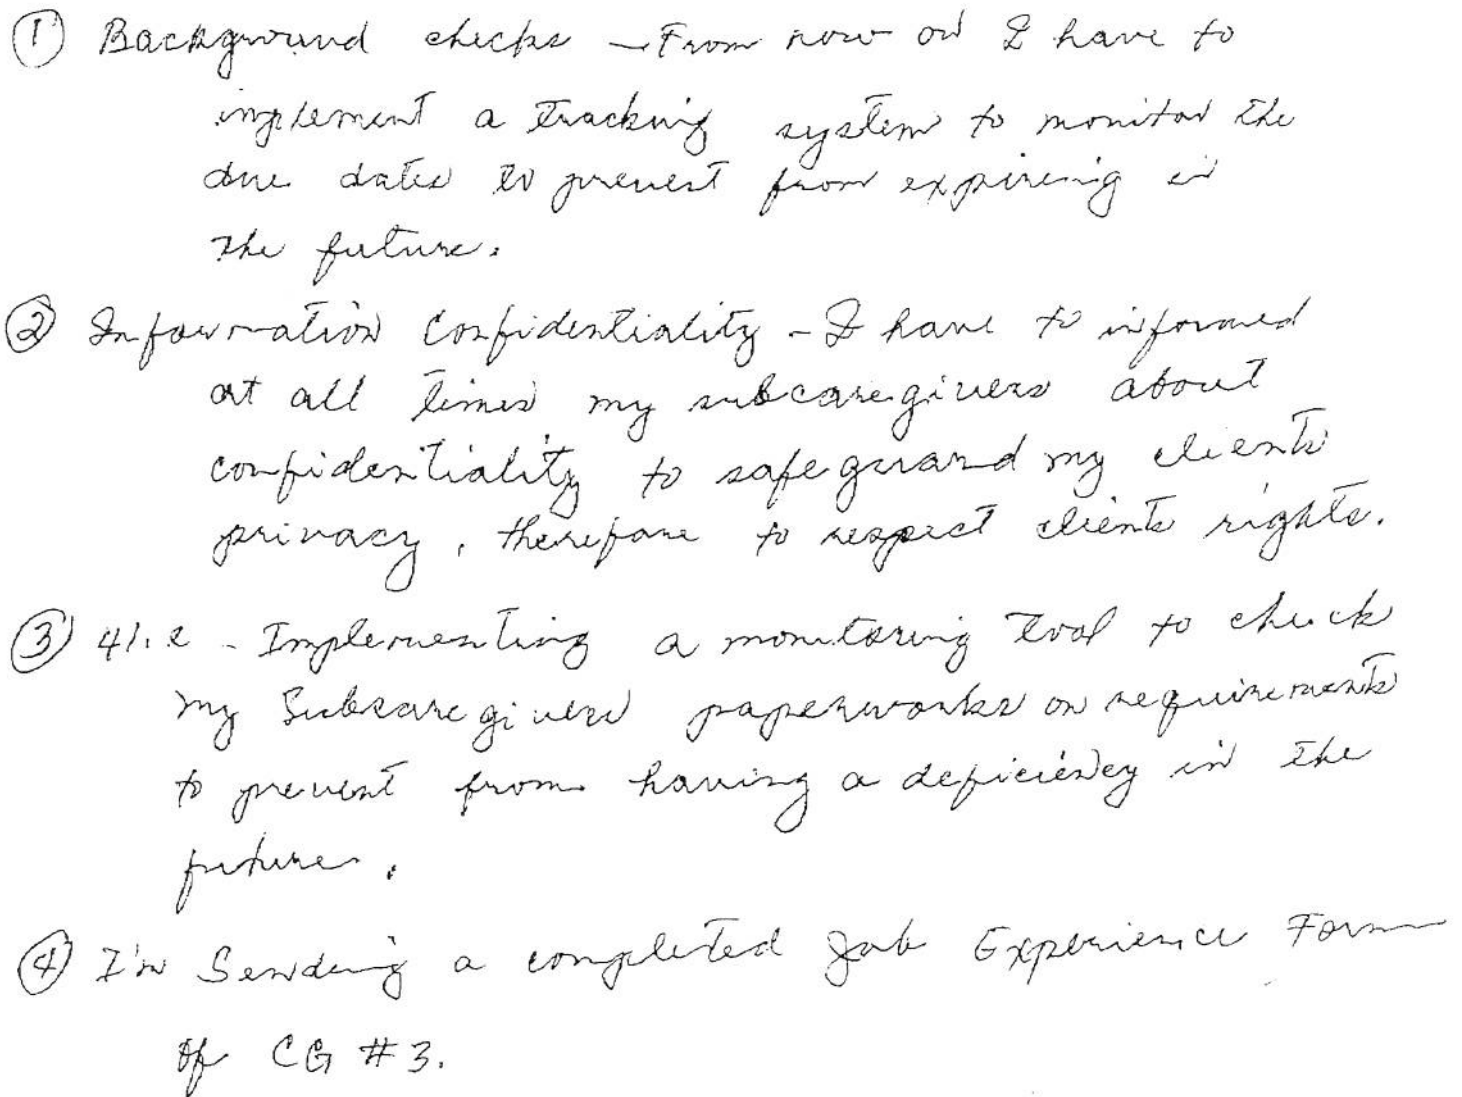 ① Background checks - From now on I have to
implement a tracking system to monitor the
due dates to prevent from expiring in
the future.
② Information Confidentiality - I have to informed
at all times my subcaregivers about
confidentiality to safeguard my clients
privacy, therefore to respect clients rights.
③ 41.e - Implementing a monitoring tool to check
my Subcaregivers paperworks or requirements
to prevent from having a deficiency in the
future.
④ I'm Sending a completed Job Experience Form
of CG #3.